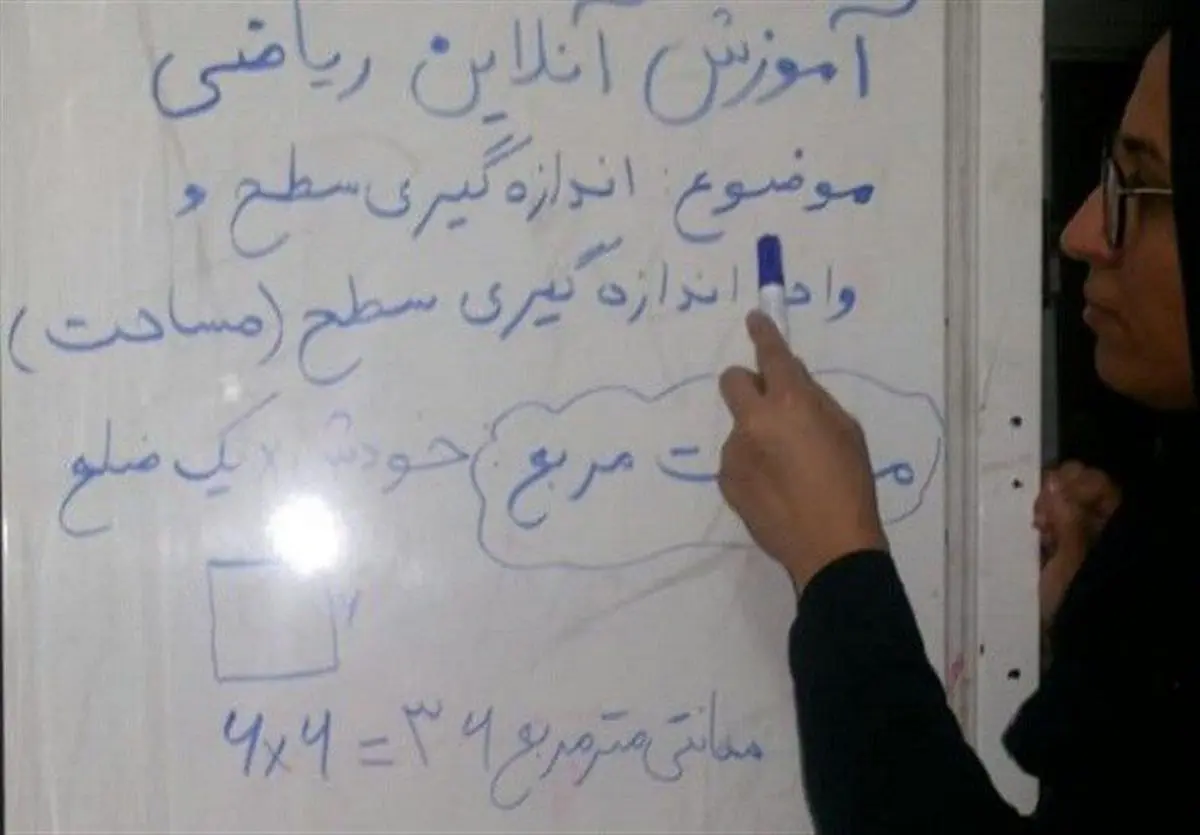 آموزش آنلاین ریاضی
موضوع: اندازه گیری سطح و
واحد اندازه گیری سطح (مساحت)
مربع خودش × یک ضلع
۶
۶×۶=۳۶ سانتی متر مربع